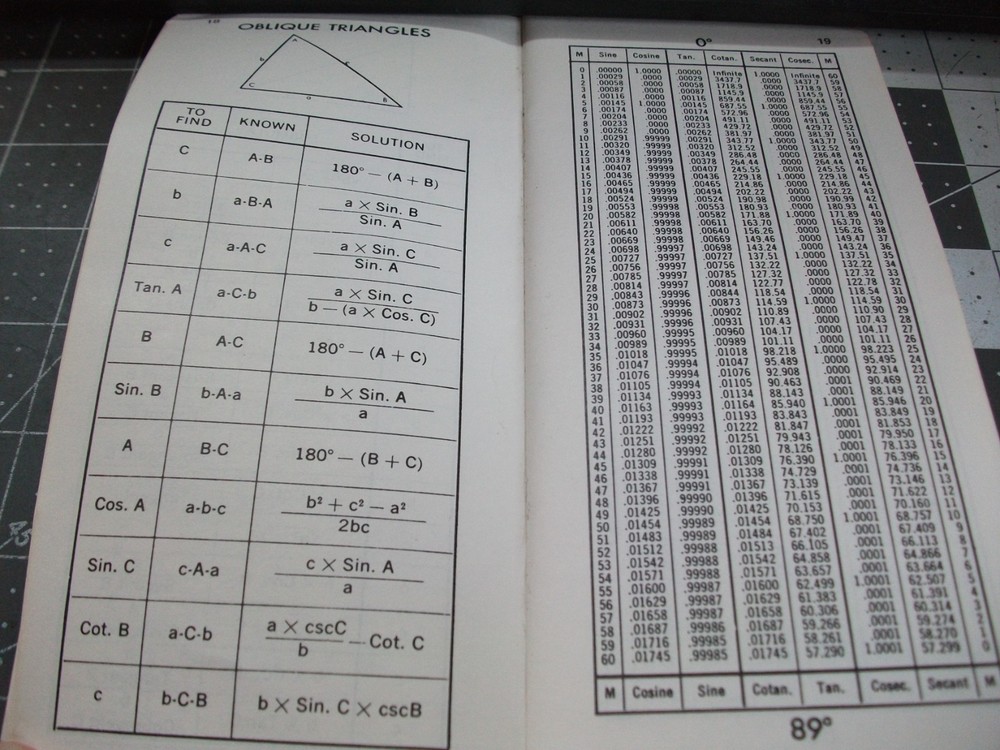 18
OBLIQUE TRIANGLES
A
b c
C a B
TO FIND KNOWN SOLUTION
C A-B 180° — (A + B)
b a-B-A a × Sin. B
Sin. A
c a-A-C a × Sin. C
Sin. A
Tan. A a-C-b a × Sin. C
b — (a × Cos. C)
B A-C 180° — (A + C)
Sin. B b-A-a b × Sin. A
a
A B-C 180° — (B + C)
Cos. A a-b-c b² + c² — a²
2bc
Sin. C c-A-a c × Sin. A
a
Cot. B a-C-b a × cscC
b — Cot. C
c b-C-B b × Sin. C × cscB
0° 19
M Sine Cosine Tan. Cotan. Secant Cosec. M
0 .00000 1.0000 .00000 Infinite 1.0000 Infinite 60
1 .00029 .0000 .00029 3437.7 .0000 3437.7 59
2 .00058 .0000 .00058 1718.9 .0000 1718.9 58
3 .00087 .0000 .00087 1145.9 .0000 1145.9 57
4 .00116 .0000 .00116 859.44 .0000 859.44 56
5 .00145 1.0000 .00145 687.55 1.0000 687.55 55
6 .00174 .0000 .00174 572.96 .0000 572.96 54
7 .00204 .0000 .00204 491.11 .0000 491.11 53
8 .00233 .0000 .00233 429.72 .0000 429.72 52
9 .00262 .0000 .00262 381.97 .0000 381.97 51
10 .00291 .99999 .00291 343.77 1.0000 343.77 50
11 .00320 .99999 .00320 312.52 .0000 312.52 49
12 .00349 .99999 .00349 286.48 .0000 286.48 48
13 .00378 .99999 .00378 264.44 .0000 264.44 47
14 .00407 .99999 .00407 245.55 .0000 245.55 46
15 .00436 .99999 .00436 229.18 1.0000 229.18 45
16 .00465 .99999 .00465 214.86 .0000 214.86 44
17 .00494 .99999 .00494 202.22 .0000 202.22 43
18 .00524 .99999 .00524 190.98 .0000 190.99 42
19 .00553 .99998 .00553 180.93 .0000 180.93 41
20 .00582 .99998 .00582 171.88 1.0000 171.89 40
21 .00611 .99998 .00611 163.70 .0000 163.70 39
22 .00640 .99998 .00640 156.26 .0000 156.26 38
23 .00669 .99998 .00669 149.46 .0000 149.47 37
24 .00698 .99997 .00698 143.24 .0000 143.24 36
25 .00727 .99997 .00727 137.51 1.0000 137.51 35
26 .00756 .99997 .00756 132.22 .0000 132.22 34
27 .00785 .99997 .00785 127.32 .0000 127.32 33
28 .00814 .99997 .00814 122.77 .0000 122.78 32
29 .00843 .99996 .00844 118.54 .0000 118.54 31
30 .00873 .99996 .00873 114.59 1.0000 114.59 30
31 .00902 .99996 .00902 110.89 .0000 110.90 29
32 .00931 .99996 .00931 107.43 .0000 107.43 28
33 .00960 .99995 .00960 104.17 .0000 104.17 27
34 .00989 .99995 .00989 101.11 .0000 101.11 26
35 .01018 .99995 .01018 98.218 1.0000 98.223 25
36 .01047 .99994 .01047 95.489 .0000 95.495 24
37 .01076 .99994 .01076 92.908 .0000 92.914 23
38 .01105 .99994 .01105 90.463 .0001 90.469 22
39 .01134 .99993 .01134 88.143 .0001 88.149 21
40 .01163 .99993 .01164 85.940 1.0001 85.946 20
41 .01193 .99993 .01193 83.843 .0001 83.849 19
42 .01222 .99992 .01222 81.847 .0001 81.853 18
43 .01251 .99992 .01251 79.943 .0001 79.950 17
44 .01280 .99992 .01280 78.126 .0001 78.133 16
45 .01309 .99991 .01309 76.390 1.0001 76.396 15
46 .01338 .99991 .01338 74.729 .0001 74.736 14
47 .01367 .99991 .01367 73.139 .0001 73.146 13
48 .01396 .99990 .01396 71.615 .0001 71.622 12
49 .01425 .99990 .01425 70.153 .0001 70.160 11
50 .01454 .99989 .01454 68.750 1.0001 68.757 10
51 .01483 .99989 .01484 67.402 .0001 67.409 9
52 .01512 .99988 .01513 66.105 .0001 66.113 8
53 .01542 .99988 .01542 64.858 .0001 64.866 7
54 .01571 .99988 .01571 63.657 .0001 63.664 6
55 .01600 .99987 .01600 62.499 1.0001 62.507 5
56 .01629 .99987 .01629 61.383 .0001 61.391 4
57 .01658 .99987 .01658 60.306 .0001 60.314 3
58 .01687 .99986 .01687 59.266 .0001 59.274 2
59 .01716 .99985 .01716 58.261 .0001 58.270 1
60 .01745 .99985 .01745 57.290 1.0001 57.299 0
M Cosine Sine Cotan. Tan. Cosec. Secant M
89°